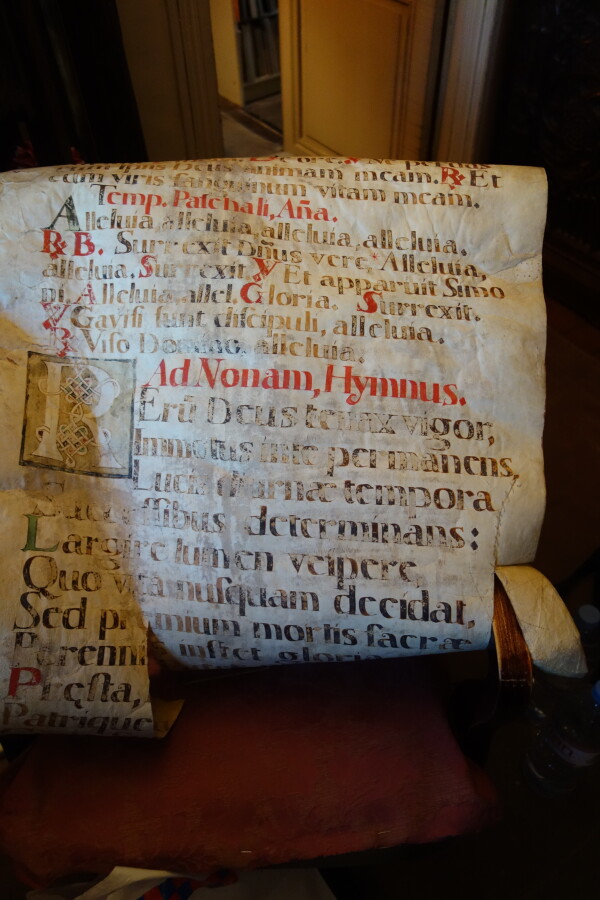 cum viris sanguinum vitam meam.
animam meam. ℟ Et
Temp. Paschali, Aña.
Alleluia, alleluia, alleluia, alleluia.
℟ B. Surrexit Dñus vere, * Alleluia,
alleluia. Surrexit. ℣ Et apparuit Simo
ni. Alleluia, allel. Gloria. Surrexit.
℣ Gavisi sunt discipuli, alleluia.
℟ Viso Domino, alleluia.
Ad Nonam, Hymnus.
Rerū Deus tenax vigor,
Immotus in te permanens,
Lucis diurnæ tempora
Successibus determinans:
Largire lumen vespere,
Quo vita nusquam decidat,
Sed præmium mortis sacræ
Perennis instet gloria
Pręsta,
Patrique